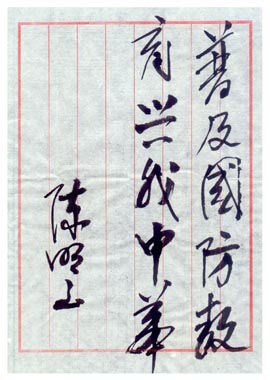 普及國防教
育兴我中华
陈明山